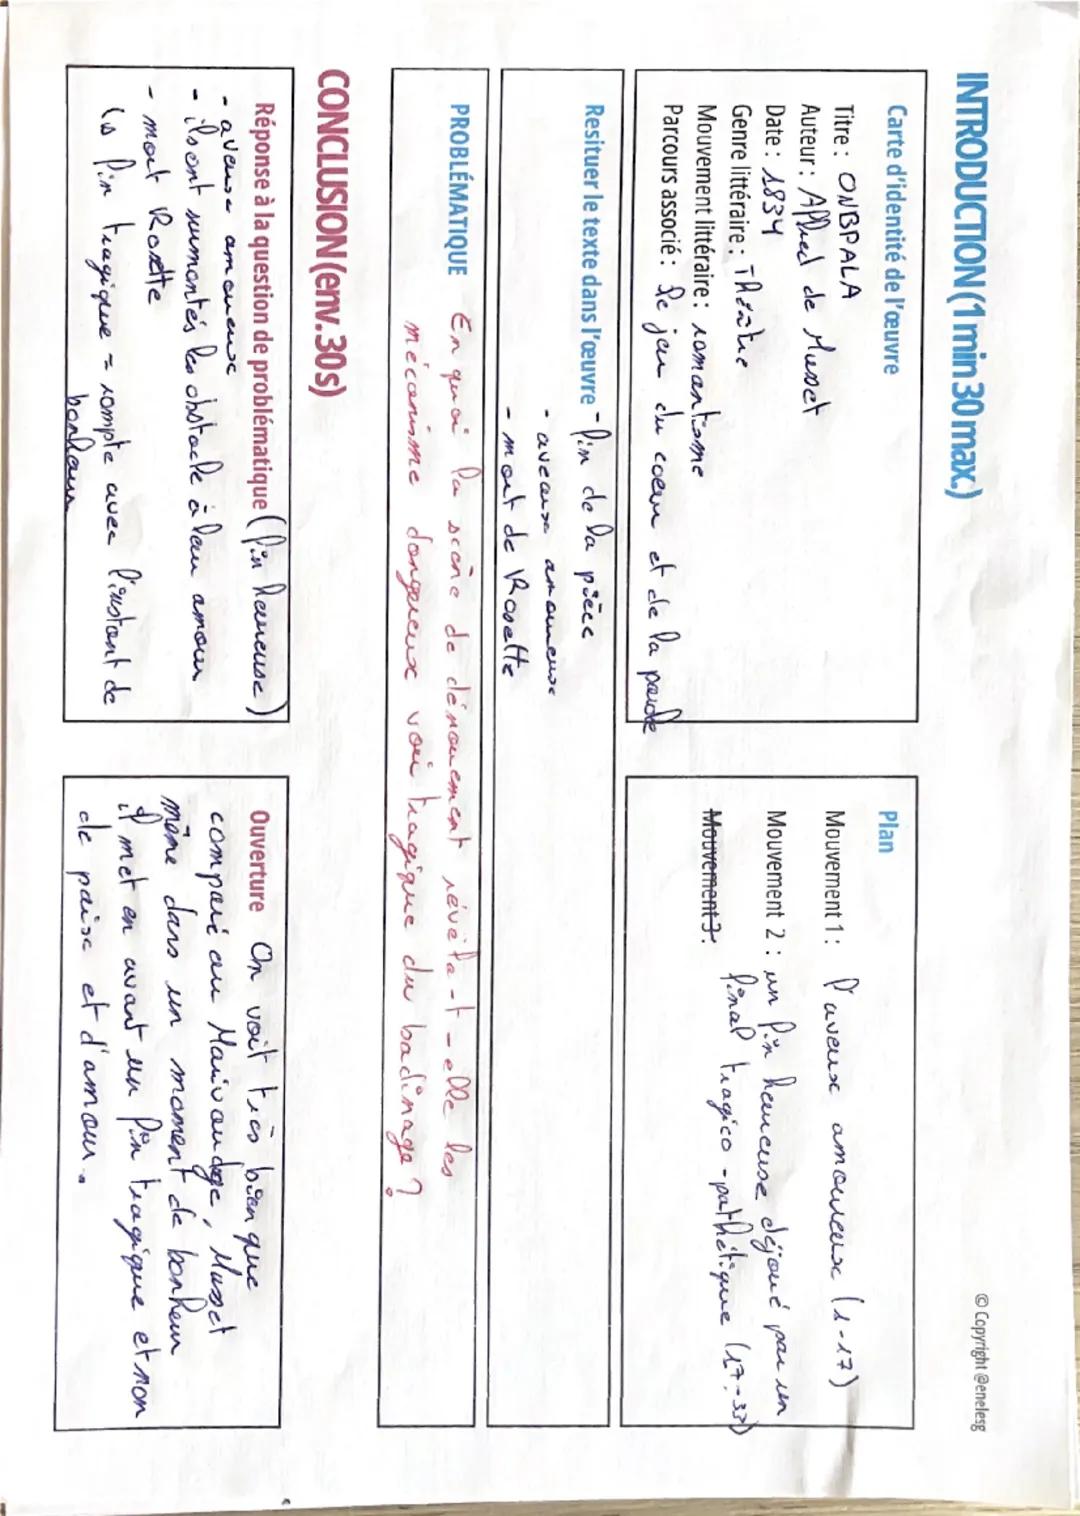 © Copyright @enelesg
INTRODUCTION (1 min 30 max.)
Carte d'identité de l'œuvre
Titre : ONBPALA
Auteur : Alfred de Musset
Date : 1834
Genre littéraire : Théâtre
Mouvement littéraire : romantisme
Parcours associé : le jeu du coeur et de la parole
Plan
Mouvement 1 : l'aveux amoureux (1-17)
Mouvement 2 : un fin heureuse déjoué par un
final tragico-pathétique (17-33)
Mouvement 3 :
Resituer le texte dans l'œuvre - fin de la pièce
- aveaux amoureux
- mort de Rosette
PROBLÉMATIQUE En quoi la scène de dénouement révèla-t-elle les
mécanisme dangereux voir tragique du badinage ?
CONCLUSION (env. 30 s)
Réponse à la question de problématique (fin heureuse)
- aveuse amoureux
- ils ont surmontés les obstacle à leur amour
- mort Rosette
↳ fin tragique = rompte avec l'instant de
bonheur
Ouverture On voit très bien que
comparé au Marivaudage, Musset
même dans un moment de bonheur
il met en avant un fin tragique et non
de paix et d'amour.